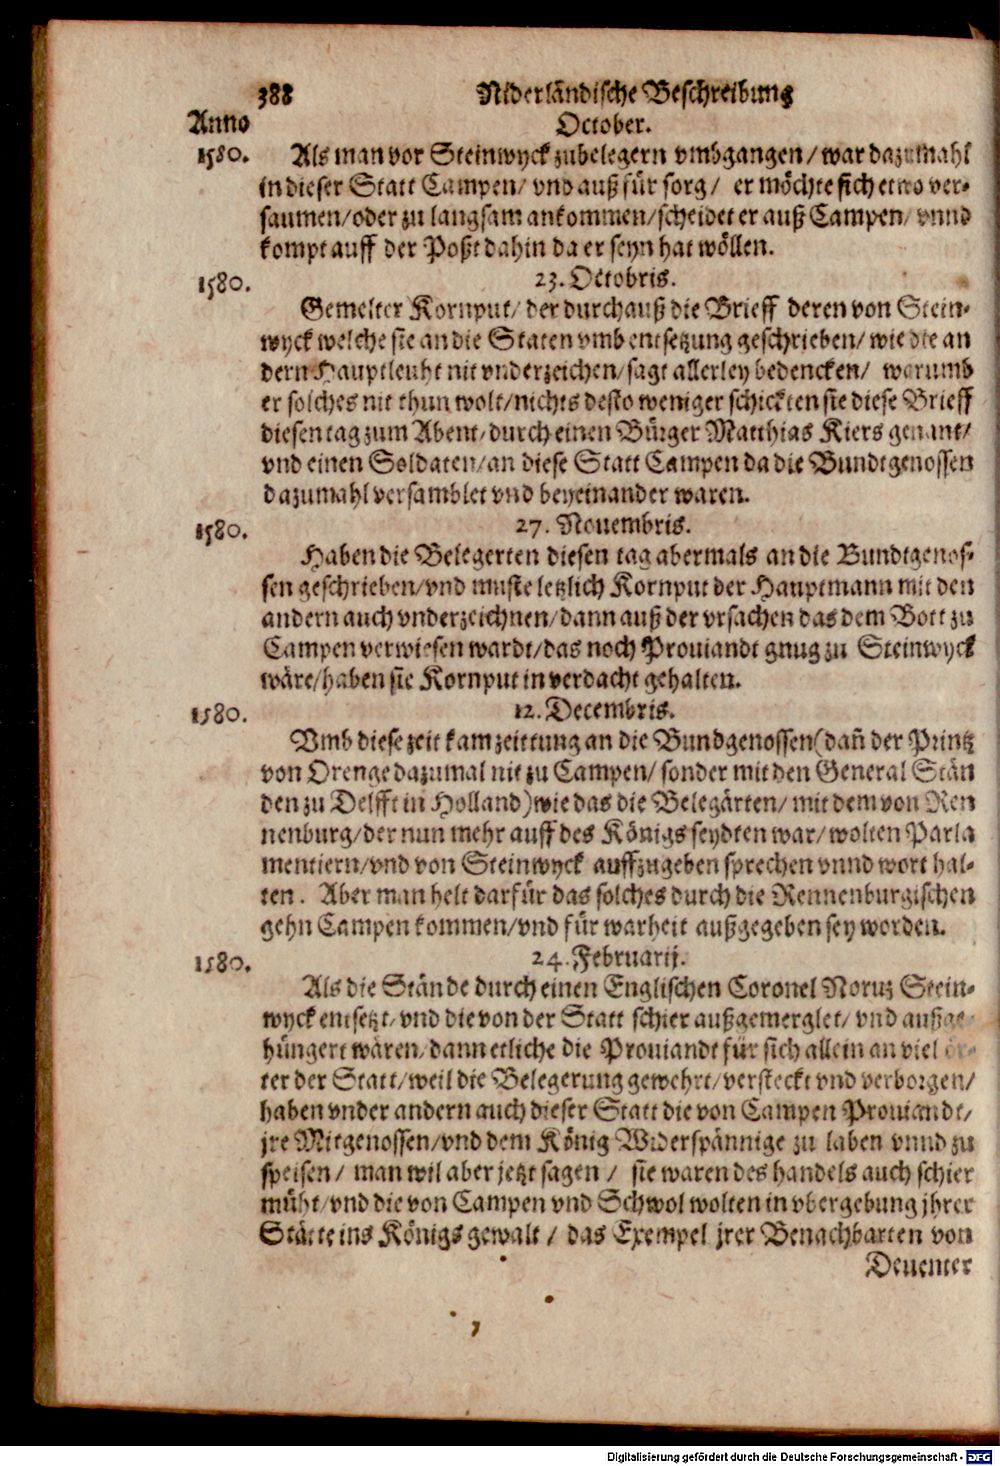 388 Niderländische Beschreibung
Anno October.
1580. Als man vor Steinwyck zubelegern vmbgangen/ war dazumahl
in dieser Statt Campen/ vnd auß für sorg/ er möchte sich etwo ver-
saumen/oder zu langsam ankommen/scheidet er auß Campen/ vnnd
kompt auff der Poßt dahin da er seyn hat wöllen.
1580. 23. Octobris.
Gemelter Kornput/ der durchauß die Brieff deren von Stein-
wyck welche sie an die Staten vmb entsetzung geschrieben/ wie die an
dern Hauptleuht nit vnderzeichen/ sagt allerley bedencken/ warumb
er solches nit thun wolt/nichts desto weniger schickten sie diese Brieff
diesen tag zum Abent/durch einen Bürger Matthias Kiers genant/
vnd einen Soldaten/an diese Statt Campen da die Bundtgenossen
dazumahl versamblet vnd beyeinander waren.
1580. 27. Nouembris.
Haben die Belegerten diesen tag abermals an die Bundtgenos-
sen geschrieben/vnd muste letzlich Kornput der Hauptmann mit den
andern auch vnderzeichnen/dann auß der vrsachen das dem Bott zu
Campen verwiesen wardt/das noch Prouiandt gnug zu Steinwyck
wäre/haben sie Kornput in verdacht gehalten.
1580. 12. Decembris.
Vmb diese zeit kam zeittung an die Bundgenossen(dañ der Printz
von Orenge dazumal nit zu Campen/ sonder mit den General Stän
den zu Delfft in Holland)wie das die Belegärten/ mit dem von Ren
nenburg/der nun mehr auff des Königs seydten war/ wolten Parla
mentiern/vnd von Steinwyck auffzugeben sprechen vnnd wort hal-
ten. Aber man helt darfür das solches durch die Rennenburgischen
gehn Campen kommen/vnd für warheit außgegeben sey worden.
1580. 24. Februarij.
Als die Stände durch einen Englischen Coronel Noruz Stein-
wyck entsetzt/vnd die von der Statt schier außgemerglet/ vnd außge-
hüngert wären/dann etliche die Prouiandt für sich allein an viel ör-
ter der Statt/weil die Belegerung gewehrt/versteckt vnd verborgen/
haben vnder andern auch dieser Statt die von Campen Prouiandt/
jre Mitgenossen/vnd dem König Widerspännige zu laben vnnd zu
speisen/ man wil aber jetzt sagen/ sie waren des handels auch schier
müht/vnd die von Campen vnd Schwol wolten in vbergebung jhrer
Stätte ins Königs gewalt/ das Exempel jrer Benachbarten von
Deuenter
Digitalisierung gefördert durch die Deutsche Forschungsgemeinschaft - DFG